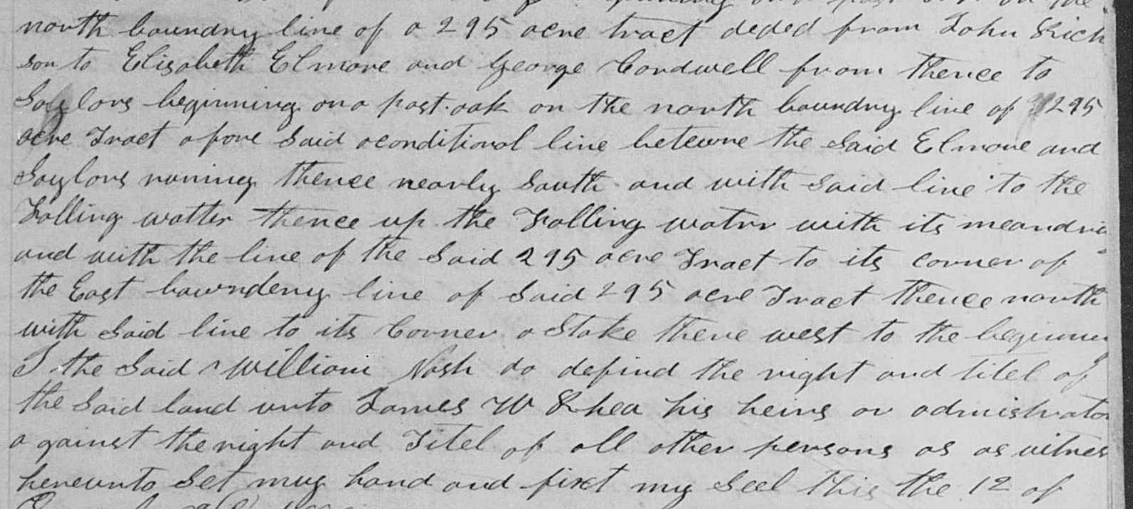 north boundry line of a 295 acre tract deded from John Rich
son to Elizabeth Elmore and George Cordwell from thence to
Saylors beginning on a post oak on the north boundry line of 295
acre Tract afore Said aconditional line betewne the Said Elmore and
Saylors runing thence nearly South and with Said line to the
Falling watter thence up the Falling watr with its meandri
and with the line of the Said 295 acre Tract to its corner of
the East bowndery line of Said 295 acre Tract thence north
with Said line to its Corner a Stake thence west to the beginning
I the Said William Nash do defind the right and titel of
the Said land unto James W Rhea his heirs or admistrator
a gainst the right and Titel of all other persons as as witnes
hereunto Set my hand and fixt my Seel this the 12 of